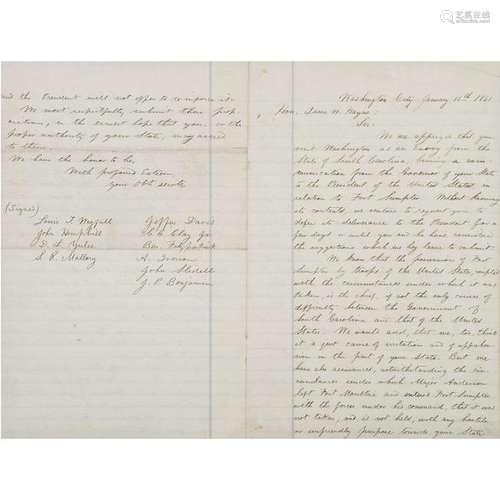 and the President will not offer to compose it.
We most respectfully submit these prop
ositions, in the earnest hope that you, or the
proper authority of your State, may accede
to them.
We have the honor to be,
With profound Esteem
Your Obt servts
(Signed)
Louis T. Wigfall
John Hemphill
D. L. Yulee
S. R. Mallory
Jeffer Davis
C. C. Clay Jr.
Ben. Fitzpatrick
A. Iverson
John Slidell
J. P. Benjamin
Washington City January 15th 1861
Hon. Isaac W. Hayne:
Sir:
We are apprized that you
visit Washington as an envoy from the
State of South Carolina, bearing a com-
munication from the Governor of your State
to the President of the United States in
relation to Fort Sumpter. Without knowing
its contents, we venture to request you to
defer its deliverance to the President for a
few days or until you and he have considered
the suggestions which we beg leave to submit.
We know that the possession of Fort
Sumpter by troops of the United States, coupled
with the circumstances under which it was
taken, is the chief, if not the only source of
difficulty between the Government of
South Carolina and that of the United
States. We would add, that we, too, think
it a just cause of irritation and of apprehen
sion on the part of your State. But we
have also assurances, notwithstanding the cir-
cumstances under which Major Anderson
left Fort Moultrie and entered Fort Sumpter
with the forces under his command, that it was
not taken, and is not held, with any hostile
or unfriendly purpose towards your State